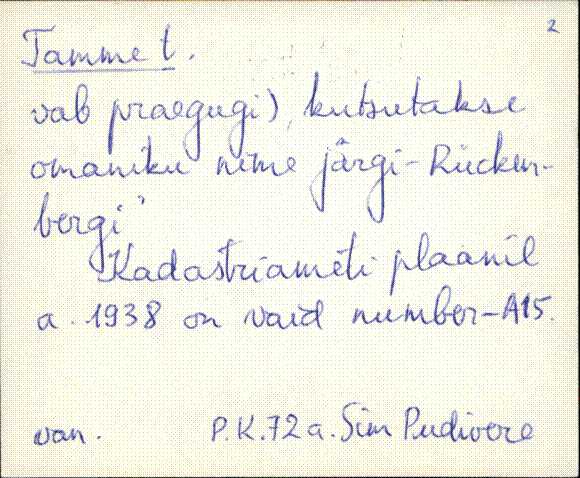 2
Tamme t.
vab praegugi) kutsutakse
omaniku nime järgi - Rücken-
bergi"
Kadastriameti plaanil
a. 1938 on vaid number - A15.
van. P.K. 72 a. Sim Pudivere